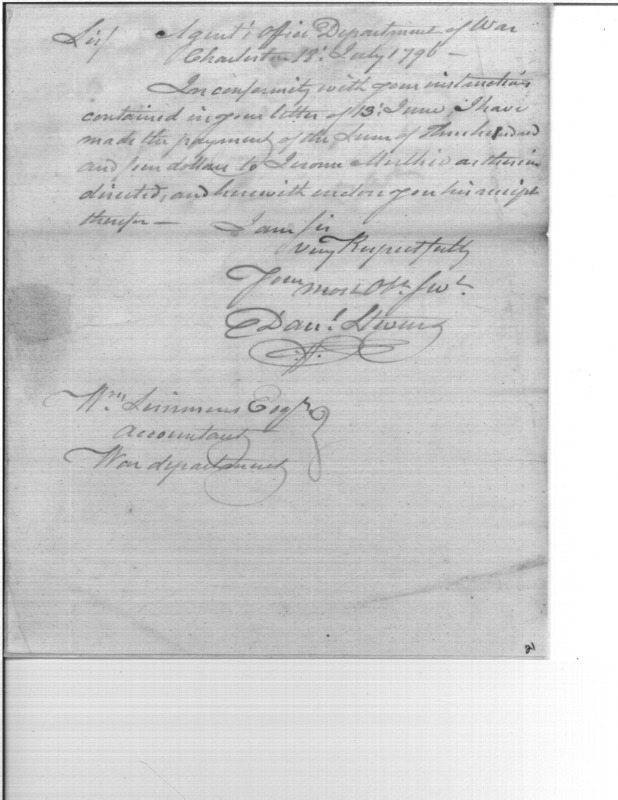 Sir/ Agent's Office Department of War
Charleston 18: July 1796 —
In conformity with your instructions
contained in your letter of 13: June, I have
made the payment of the Sum of three hundred
and four dollars to Jerome as therein
directed, and herewith enclose you his receipt
therefor — I am Sir
Very Respectfully
Your most Obt. Servt.
Danl. Stevens
Wm. Simmons Esqr.
Accountant
War department
21